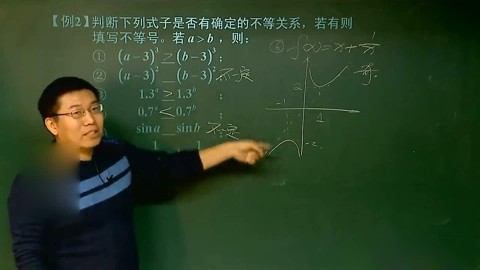 【例2】判断下列式子是否有确定的不等关系，若有则
填写不等号。若 a > b ，则：
① (a−3)³ ≥ (b−3)³ ；
② (a−3)² __ (b−3)² 不一定
1.3ᵃ ≥ 1.3ᵇ ；
0.7ᵃ ≤ 0.7ᵇ ；
sin a __ sin b 不一定
1 1
f(x)=x+1/x
2
-1
1
-2